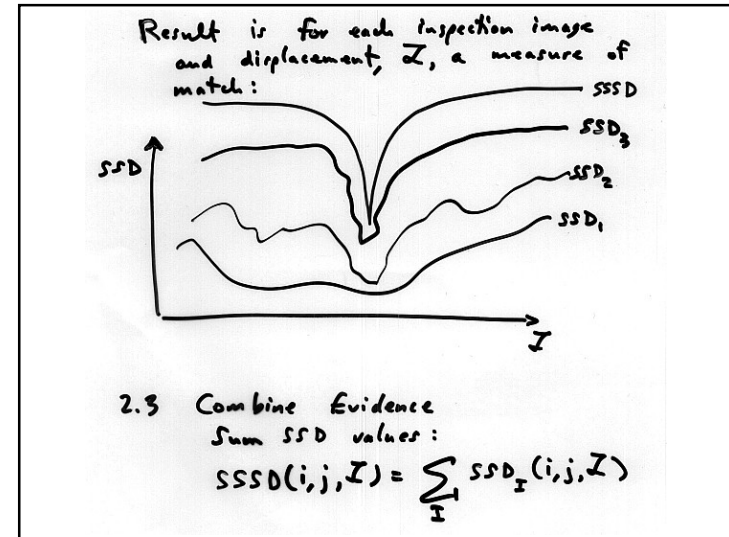 Result is for each inspection image
and displacement, I, a measure of
match:
SSSD
SSD₃
SSD
SSD₂
SSD₁
I
2.3 Combine Evidence
Sum SSD values:
SSSD(i,j,I) = ∑ SSD_I (i,j,I)
I